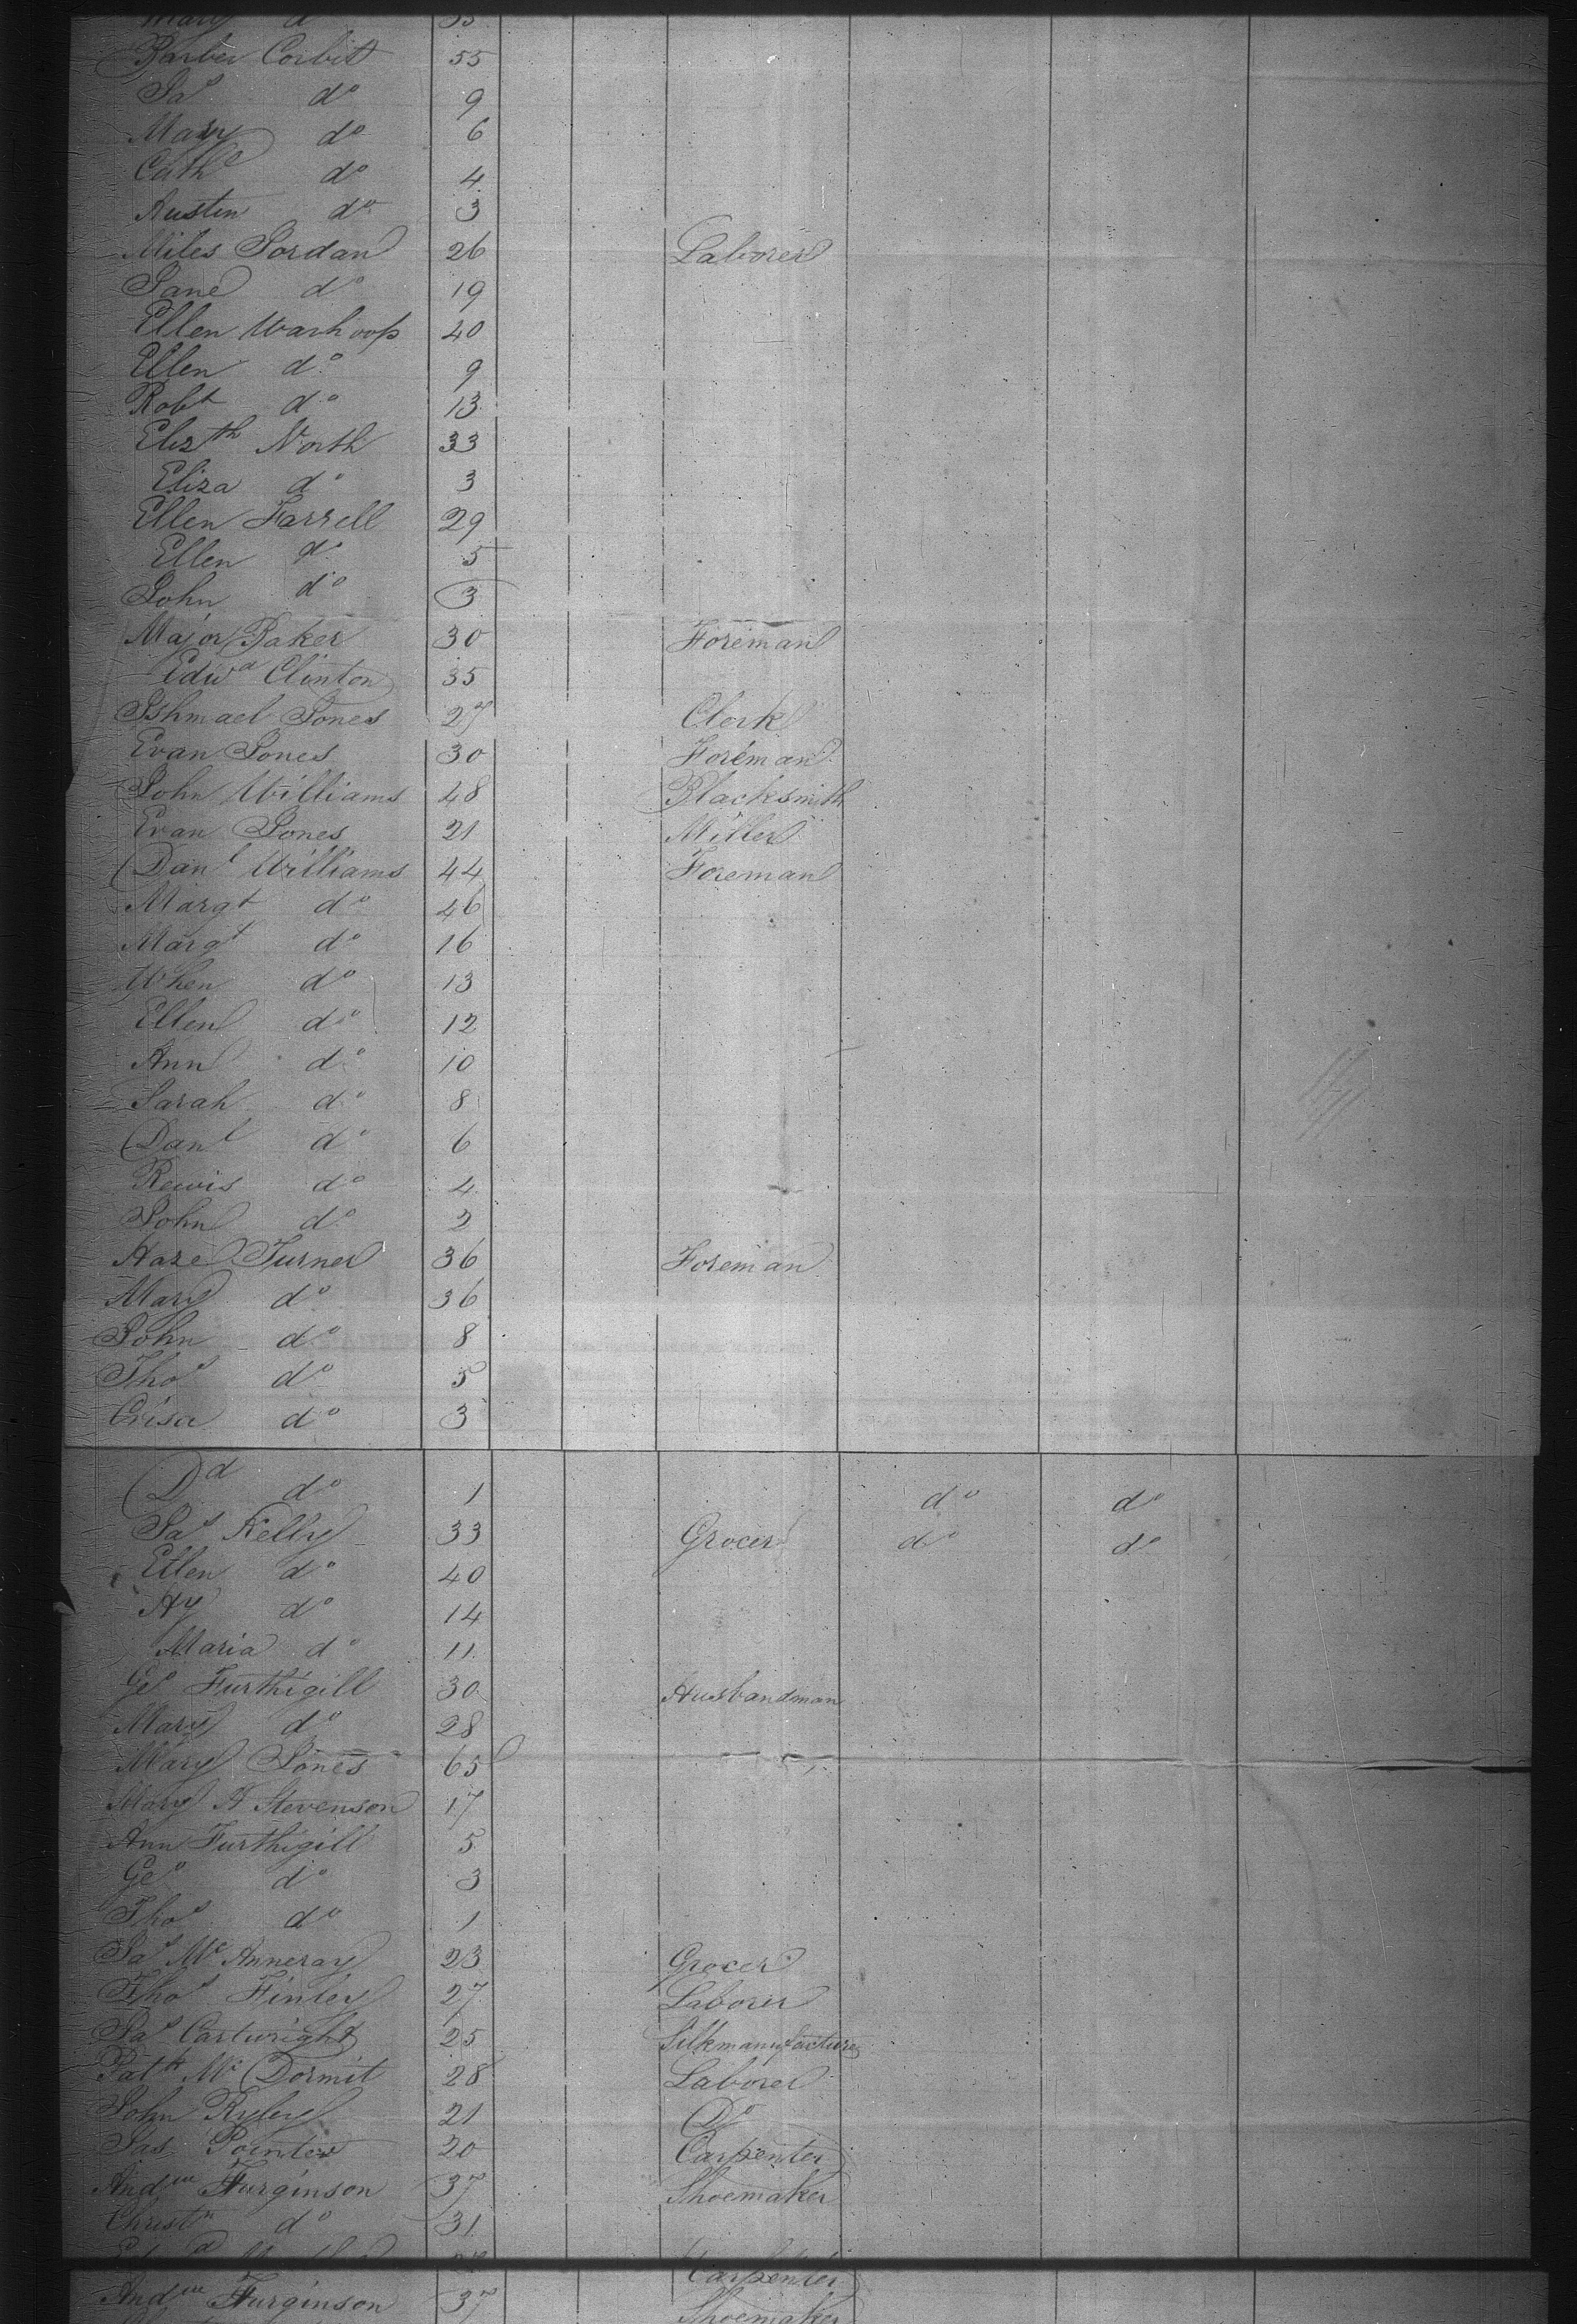 Mary do 35
Barber Corbitt 55
Jas do 9
Mary do 6
Cathe do 4
Austin do 3
Miles Jordan 26 Laborer
Jane do 19
Ellen Warhoop 40
Ellen do 9
Robt do 13
Elizth North 33
Eliza do 3
Ellen Farrell 29
Ellen do 5
John do 3
Major Baker 30 Foreman
Edwd Clinton 35
Ishmael Jones 27 Clerk
Evan Jones 30 Foreman
John Williams 48 Blacksmith
Evan Jones 21 Miller
Danl Williams 44 Foreman
Margt do 46
Margt do 16
When do 13
Ellen do 12
Ann do 10
Sarah do 8
Danl do 6
Rewis do 4
John do 2
Haze Turner 36 Foreman
Mary do 36
John do 8
Thos do 5
Crisa do 3
Dd do 1 do do
Jas Kelly 33 Grocer do do
Ellen do 40
Hy do 14
Maria do 11
Geo Furthigill 30 Husbandman
Mary do 28
Mary Jones 65
Mary A Stevenson 17
Ann Furthigill 5
Geo do 3
Thos do 1
Jas Mc Anneray 23 Grocer
Thos Finley 27 Laborer
Jas Cartwright 25 Silkmanufacturer
Patk Mc Dormit 28 Laborer
John Ryley 21 Do
Jas Pointer 20 Carpenter
Andw Furginson 37 Shoemaker
Christn do 31
Carpenter
Andw Furginson 37 Shoemaker